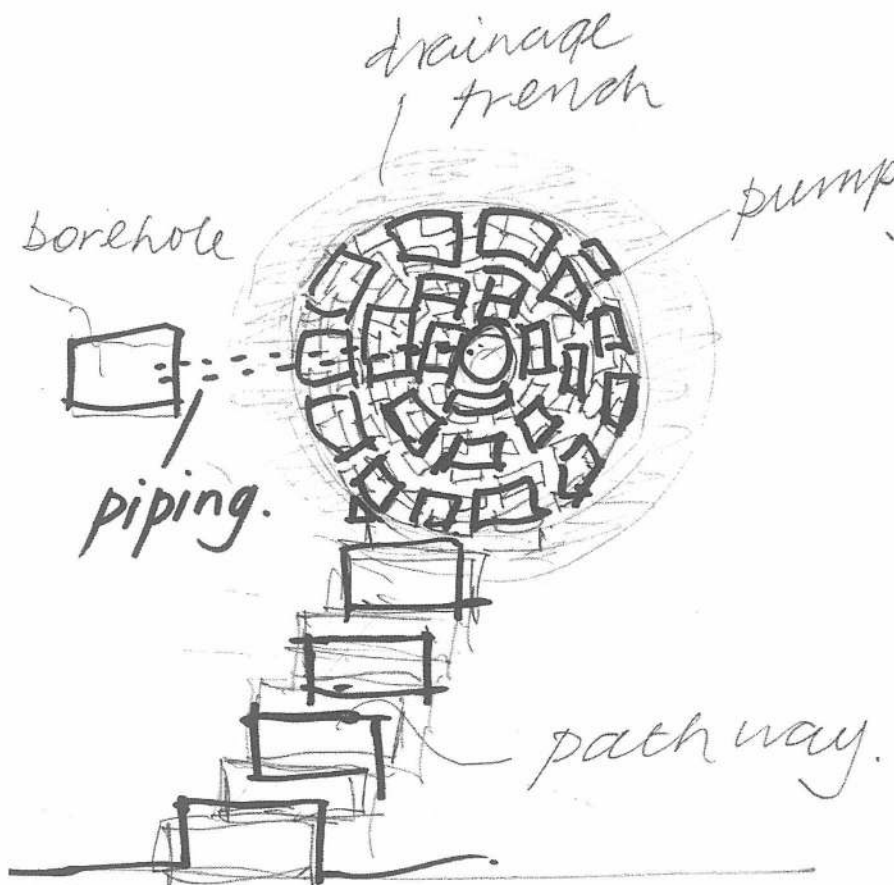 drainage
trench
pump
borehole
piping.
pathway.